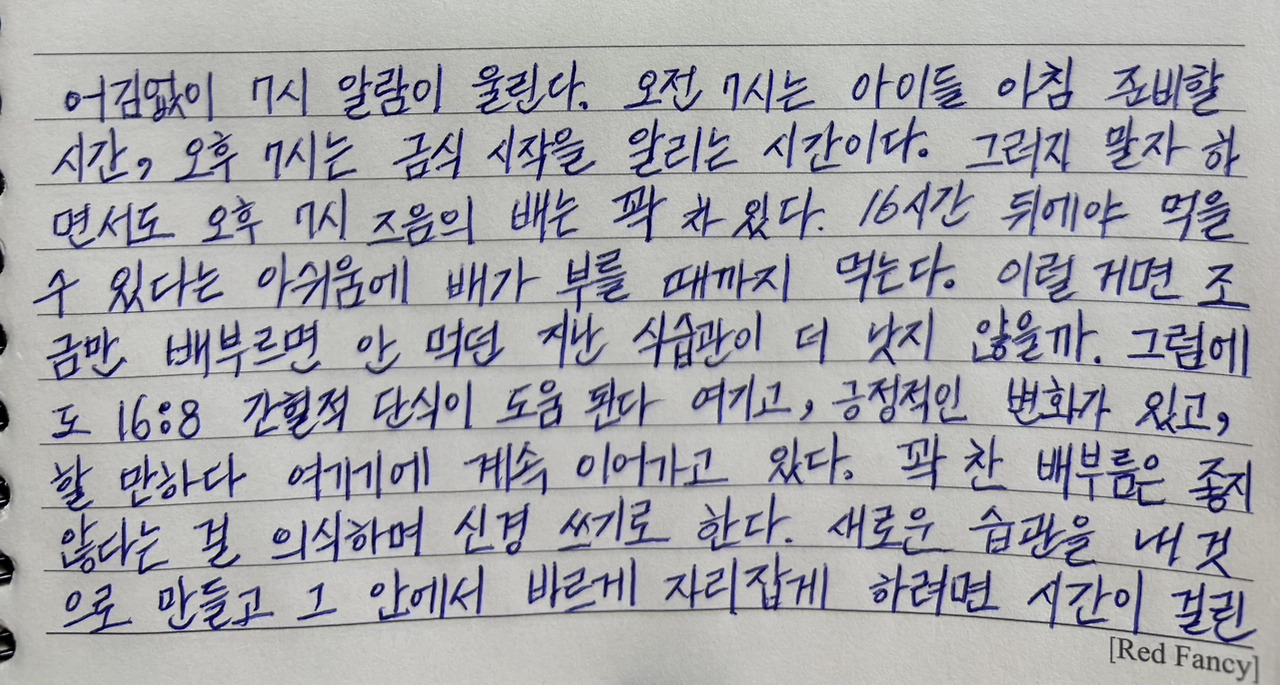 어김없이 7시 알람이 울린다. 오전 7시는 아이들 아침 준비할
시간, 오후 7시는 금식 시작을 알리는 시간이다. 그러지 말자 하
면서도 오후 7시 즈음의 배는 꽉 차 있다. 16시간 뒤에야 먹을
수 있다는 아쉬움에 배가 부를 때까지 먹는다. 이럴 거면 조
금만 배부르면 안 먹던 지난 식습관이 더 낫지 않을까. 그럼에
도 16:8 간헐적 단식이 도움 된다 여기고, 긍정적인 변화가 있고,
할 만하다 여기기에 계속 이어가고 있다. 꽉 찬 배부름은 좋지
않다는 걸 의식하며 신경 쓰기로 한다. 새로운 습관을 내 것
으로 만들고 그 안에서 바르게 자리잡게 하려면 시간이 걸린
[Red Fancy]